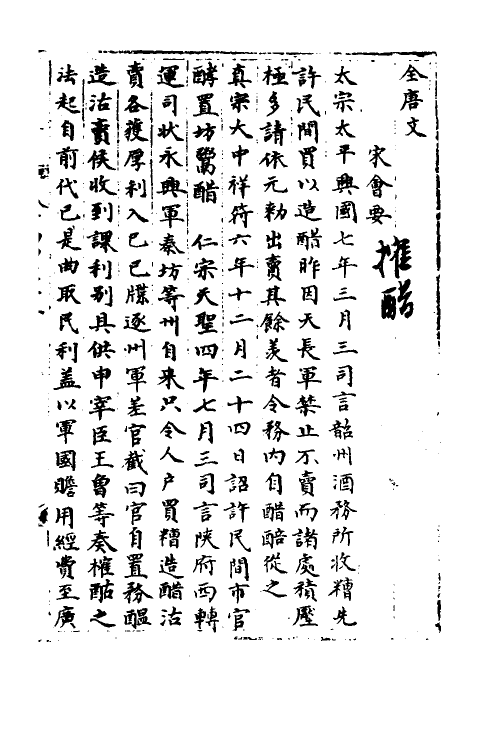 全唐文
宋會要
榷醋
太宗太平興國七年三月三司言韶州酒務所收糟先
許民間買以造醋昨因天長軍禁止不賣而諸處積壓
極多請依元勑出賣其餘羡者令務內自醋醅從之
真宗大中祥符六年十二月二十四日詔許民間市官
酵置坊鬻醋　仁宗天聖四年七月三司言陝府西轉
運司狀永興軍秦坊等州自来只令人戶買糟造醋沽
賣各獲厚利入己已牒逐州軍差官截日官自置務醞
造沽賣候收到課利别具供申宰臣王魯等奏榷酤之
法起自前代已是曲取民利盖以軍國贍用經費至廣